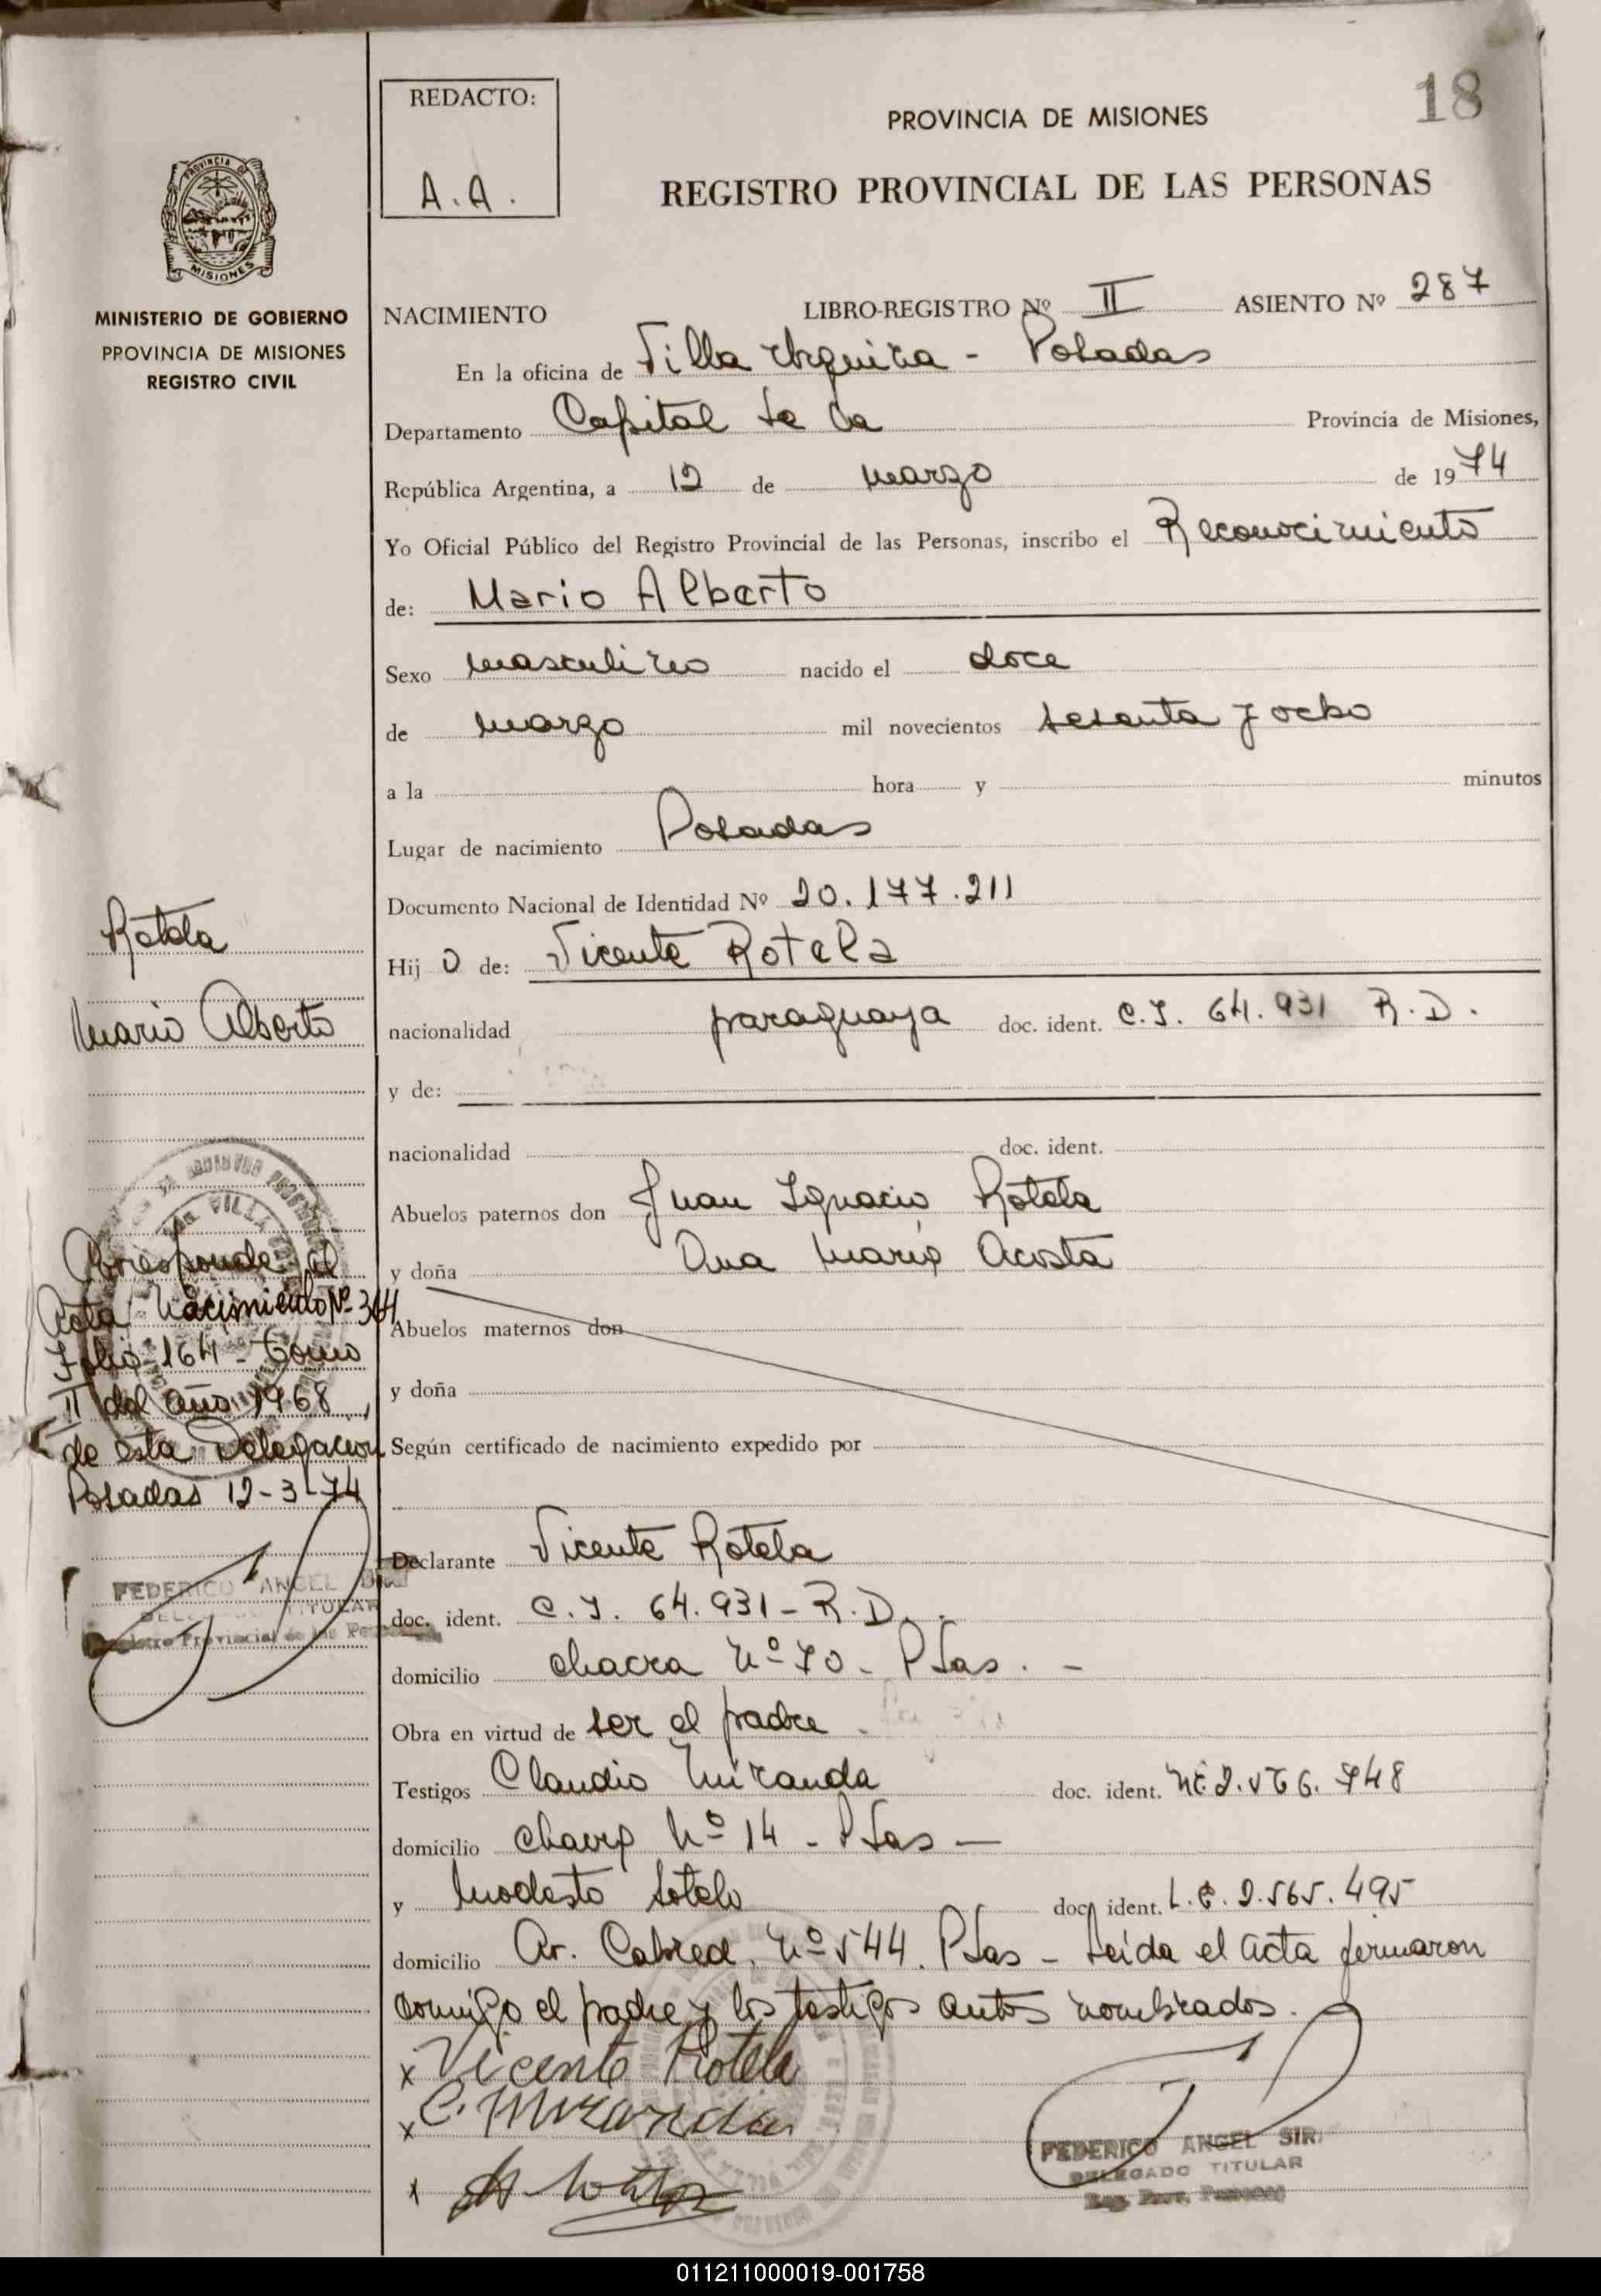 18
REDACTO:
A.A.
PROVINCIA DE MISIONES
REGISTRO PROVINCIAL DE LAS PERSONAS
PROVINCIA DE
MISIONES
MINISTERIO DE GOBIERNO
PROVINCIA DE MISIONES
REGISTRO CIVIL
NACIMIENTO LIBRO-REGISTRO Nº II ASIENTO Nº 287
En la oficina de Villa Urquiza - Posadas
Departamento Capital de la Provincia de Misiones,
República Argentina, a 12 de marzo de 1974
Yo Oficial Público del Registro Provincial de las Personas, inscribo el Reconocimiento
de: Mario Alberto
Sexo masculino nacido el doce
de marzo mil novecientos sesenta y ocho
a la hora y minutos
Lugar de nacimiento Posadas
Documento Nacional de Identidad Nº 20.177.211
Hij o de: Vicente Rotela
nacionalidad paraguaya doc. ident. C.I. 64.931 R.D.
y de:
nacionalidad doc. ident.
Abuelos paternos don Juan Ignacio Rotela
y doña Ana María Acosta
Abuelos maternos don
y doña
Según certificado de nacimiento expedido por
Declarante Vicente Rotela
doc. ident. C.I. 64.931 - R.D.
domicilio chacra Nº 70 - Psas. -
Obra en virtud de ser el padre
Testigos Claudio Miranda doc. ident. 748
domicilio Nº 14 - Psas -
y Modesto Sotelo doc. ident. L.E. 2.565.495
domicilio Av. Cabred Nº 544. Psas - Leída el acta firmaron
conmigo el padre y los testigos antes nombrados.
x Vicente Rotela
x C. Miranda
x
FEDERICO ANGEL SIRI
DELEGADO TITULAR
Rotela
Mario Alberto
Corresponde al
Acta Nacimiento Nº 344
Folio 164 - Tomo
II del año 1968,
de esta Delegacion
Posadas 12-3-74
FEDERICO ANGEL
TITULAR
Registro Provincial de las
011211000019-001758